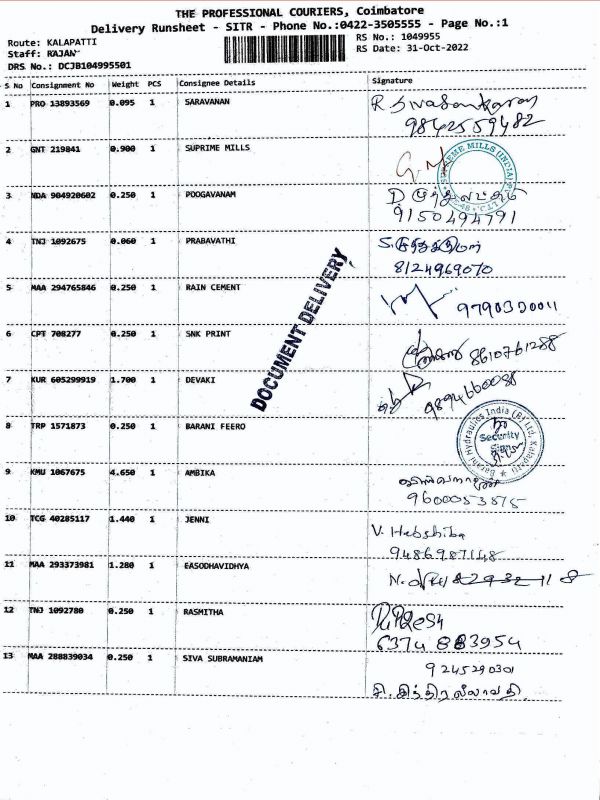 THE PROFESSIONAL COURIERS, Coimbatore
Delivery Runsheet - SITR - Phone No.:0422-3505555 - Page No.:1
Route: KALAPATTI
Staff: RAJAN
DRS No.: DCJB104995501
RS No.: 1049955
RS Date: 31-Oct-2022
S No Consignment No Weight PCS Consignee Details Signature
1 PRO 13893569 0.095 1 SARAVANAN R Sivasankaran
9842559482
2 GNT 219841 0.900 1 SUPRIME MILLS
3 NDA 904920602 0.250 1 POOGAVANAM
9150494791
4 TNJ 1092675 0.060 1 PRABAVATHI
8124969070
5 MAA 294765846 0.250 1 RAIN CEMENT
DOCUMENT DELIVERY
6 CPT 708277 0.250 1 SNK PRINT 8610761288
7 KUR 605299919 1.700 1 DEVAKI 9894660088
8 TRP 1571873 0.250 1 BARANI FEERO
Barani Hydraulics India (P) Ltd, Kalapatti
Security
9 KMU 1067675 4.650 1 AMBIKA
9600053875
10 TCG 40285117 1.440 1 JENNI V. Hebshiba
9486987148
11 MAA 293373981 1.280 1 EASODHAVIDHYA
12 TNJ 1092780 0.250 1 RASMITHA
6374 883954
13 MAA 288839034 0.250 1 SIVA SUBRAMANIAM 9245290301